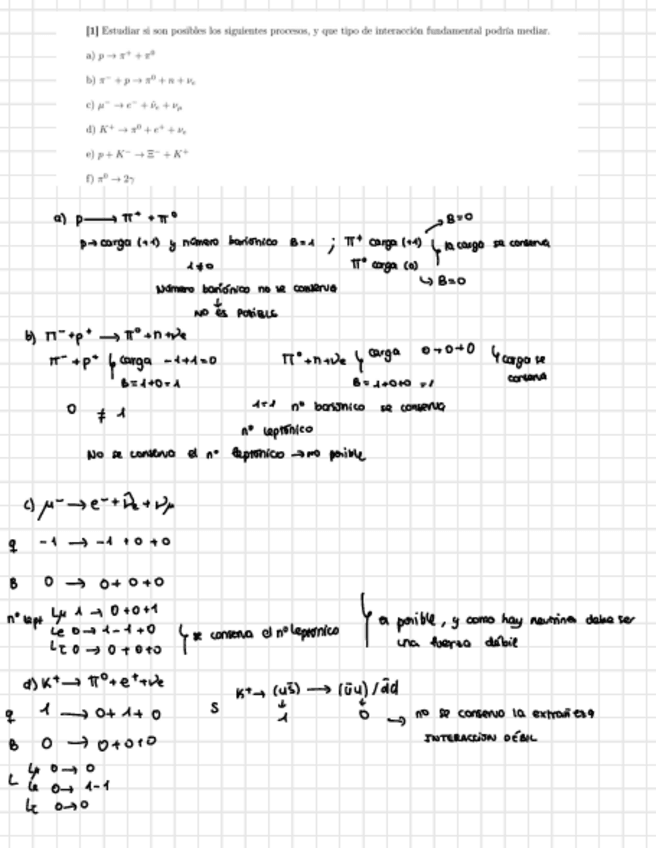 [1] Estudiar si son posibles los siguientes procesos, y que tipo de interacción fundamental podría mediar.
a) p → π⁺ + π⁰
b) π⁻ + p → π⁰ + n + νₑ
c) μ⁻ → e⁻ + ν̄ₑ + ν_μ
d) K⁺ → π⁰ + e⁺ + νₑ
e) p + K⁻ → Ξ⁻ + K⁺
f) π⁰ → 2γ
a) p → π⁺ + π⁰
p → carga (+1) y número bariónico B=1 ; π⁺ carga (+1) → B=0 la carga se conserva
1≠0 π⁰ carga (0) → B=0
Número bariónico no se conserva
↓
NO ES POSIBLE
b) π⁻ + p⁺ → π⁰ + n + νe
π⁻ + p⁺ carga -1+1=0 π⁰ + n + νe carga 0+0+0 carga se conserva
B=1+0=1 B=1+0+0=1
0 ≠ 1 1=1 nº bariónico se conserva
nº leptónico
No se conserva el nº leptónico → no posible
c) μ⁻ → e⁻ + ν̄e + νμ
q -1 → -1 + 0 + 0
B 0 → 0 + 0 + 0
nº lept Lμ 1 → 0+0+1
Le 0 → 1-1+0 se conserva el nº leptónico es posible, y como hay neutrinos debe ser una fuerza débil
Lτ 0 → 0+0+0
d) K⁺ → π⁰ + e⁺ + νe
K⁺ → (us̄) → (ūu)/d̄d
q 1 → 0+1+0 S 1 0 → no se conserva la extrañeza
INTERACCIÓN DÉBIL
B 0 → 0+0+0
L Lμ 0 → 0
Le 0 → 1-1
Lτ 0→0